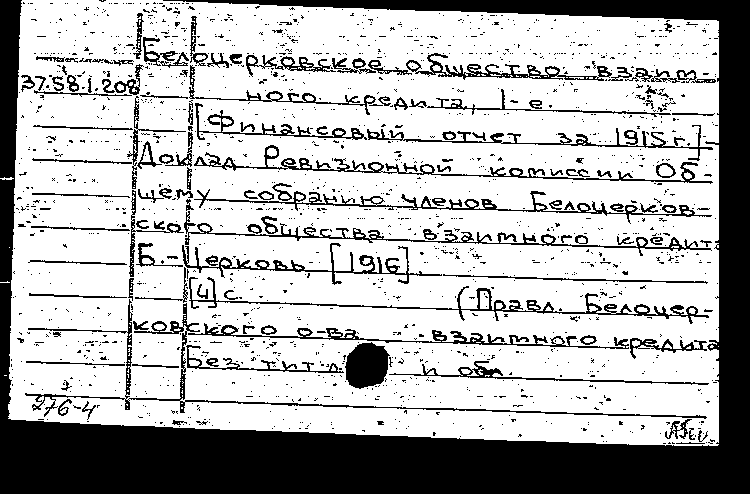 Белоцерковское общество взаим-
37.58.1.208.
ного кредита, 1-е.
[Финансовый отчет за 1915 г.] -
Доклад Ревизионной комиссии Об-
щему собранию членов Белоцерков-
ского общества взаимного кредита
Б.-Церковь, [1916].
[4] с. (Правл. Белоцер-
ковского о-ва взаимного кредита
Без тит. л. и обл.
276-4